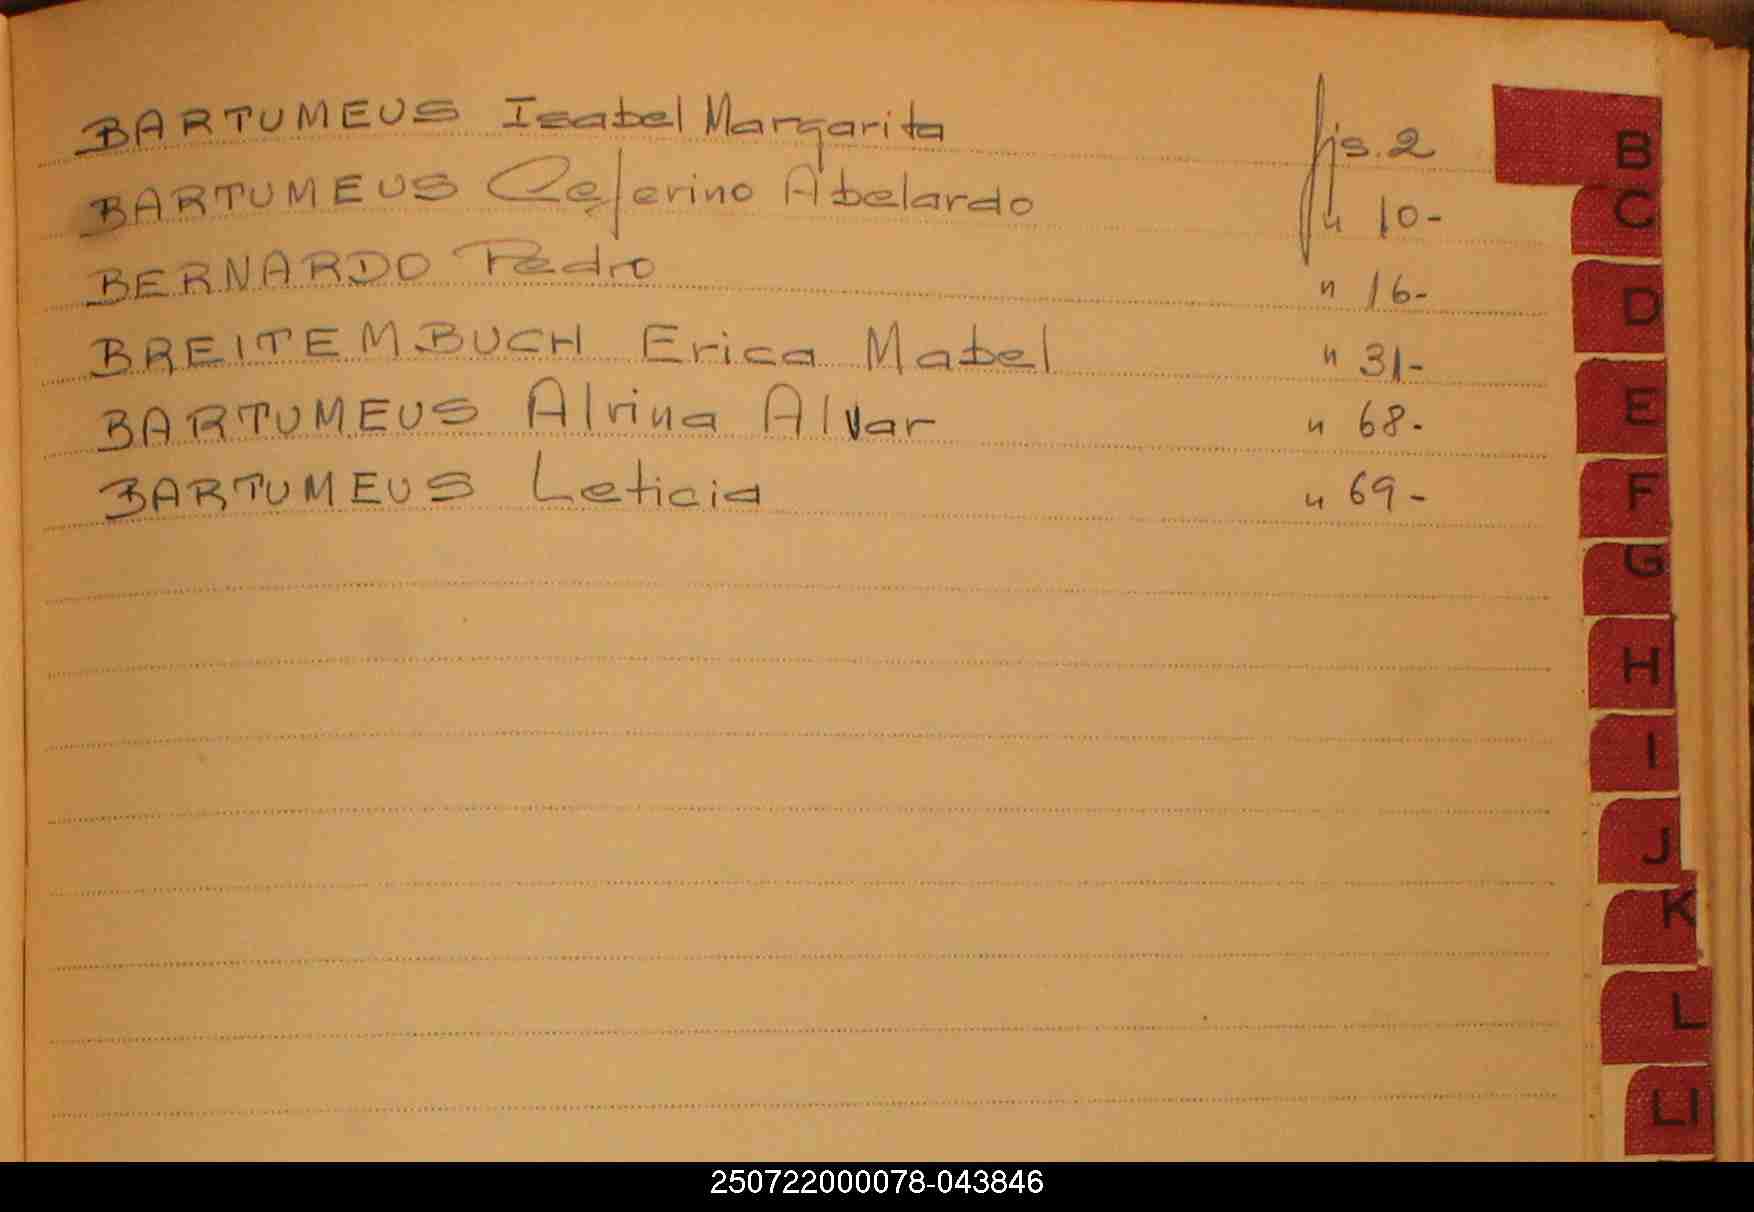 BARTUMEUS Isabel Margarita fjs. 2
BARTUMEUS Ceferino Abelardo " 10-
BERNARDO Pedro " 16-
BREITEMBUCH Erica Mabel " 31-
BARTUMEUS Alvina Alvar " 68-
BARTUMEUS Leticia " 69-
B
C
D
E
F
G
H
I
J
K
L
Ll
250722000078-043846